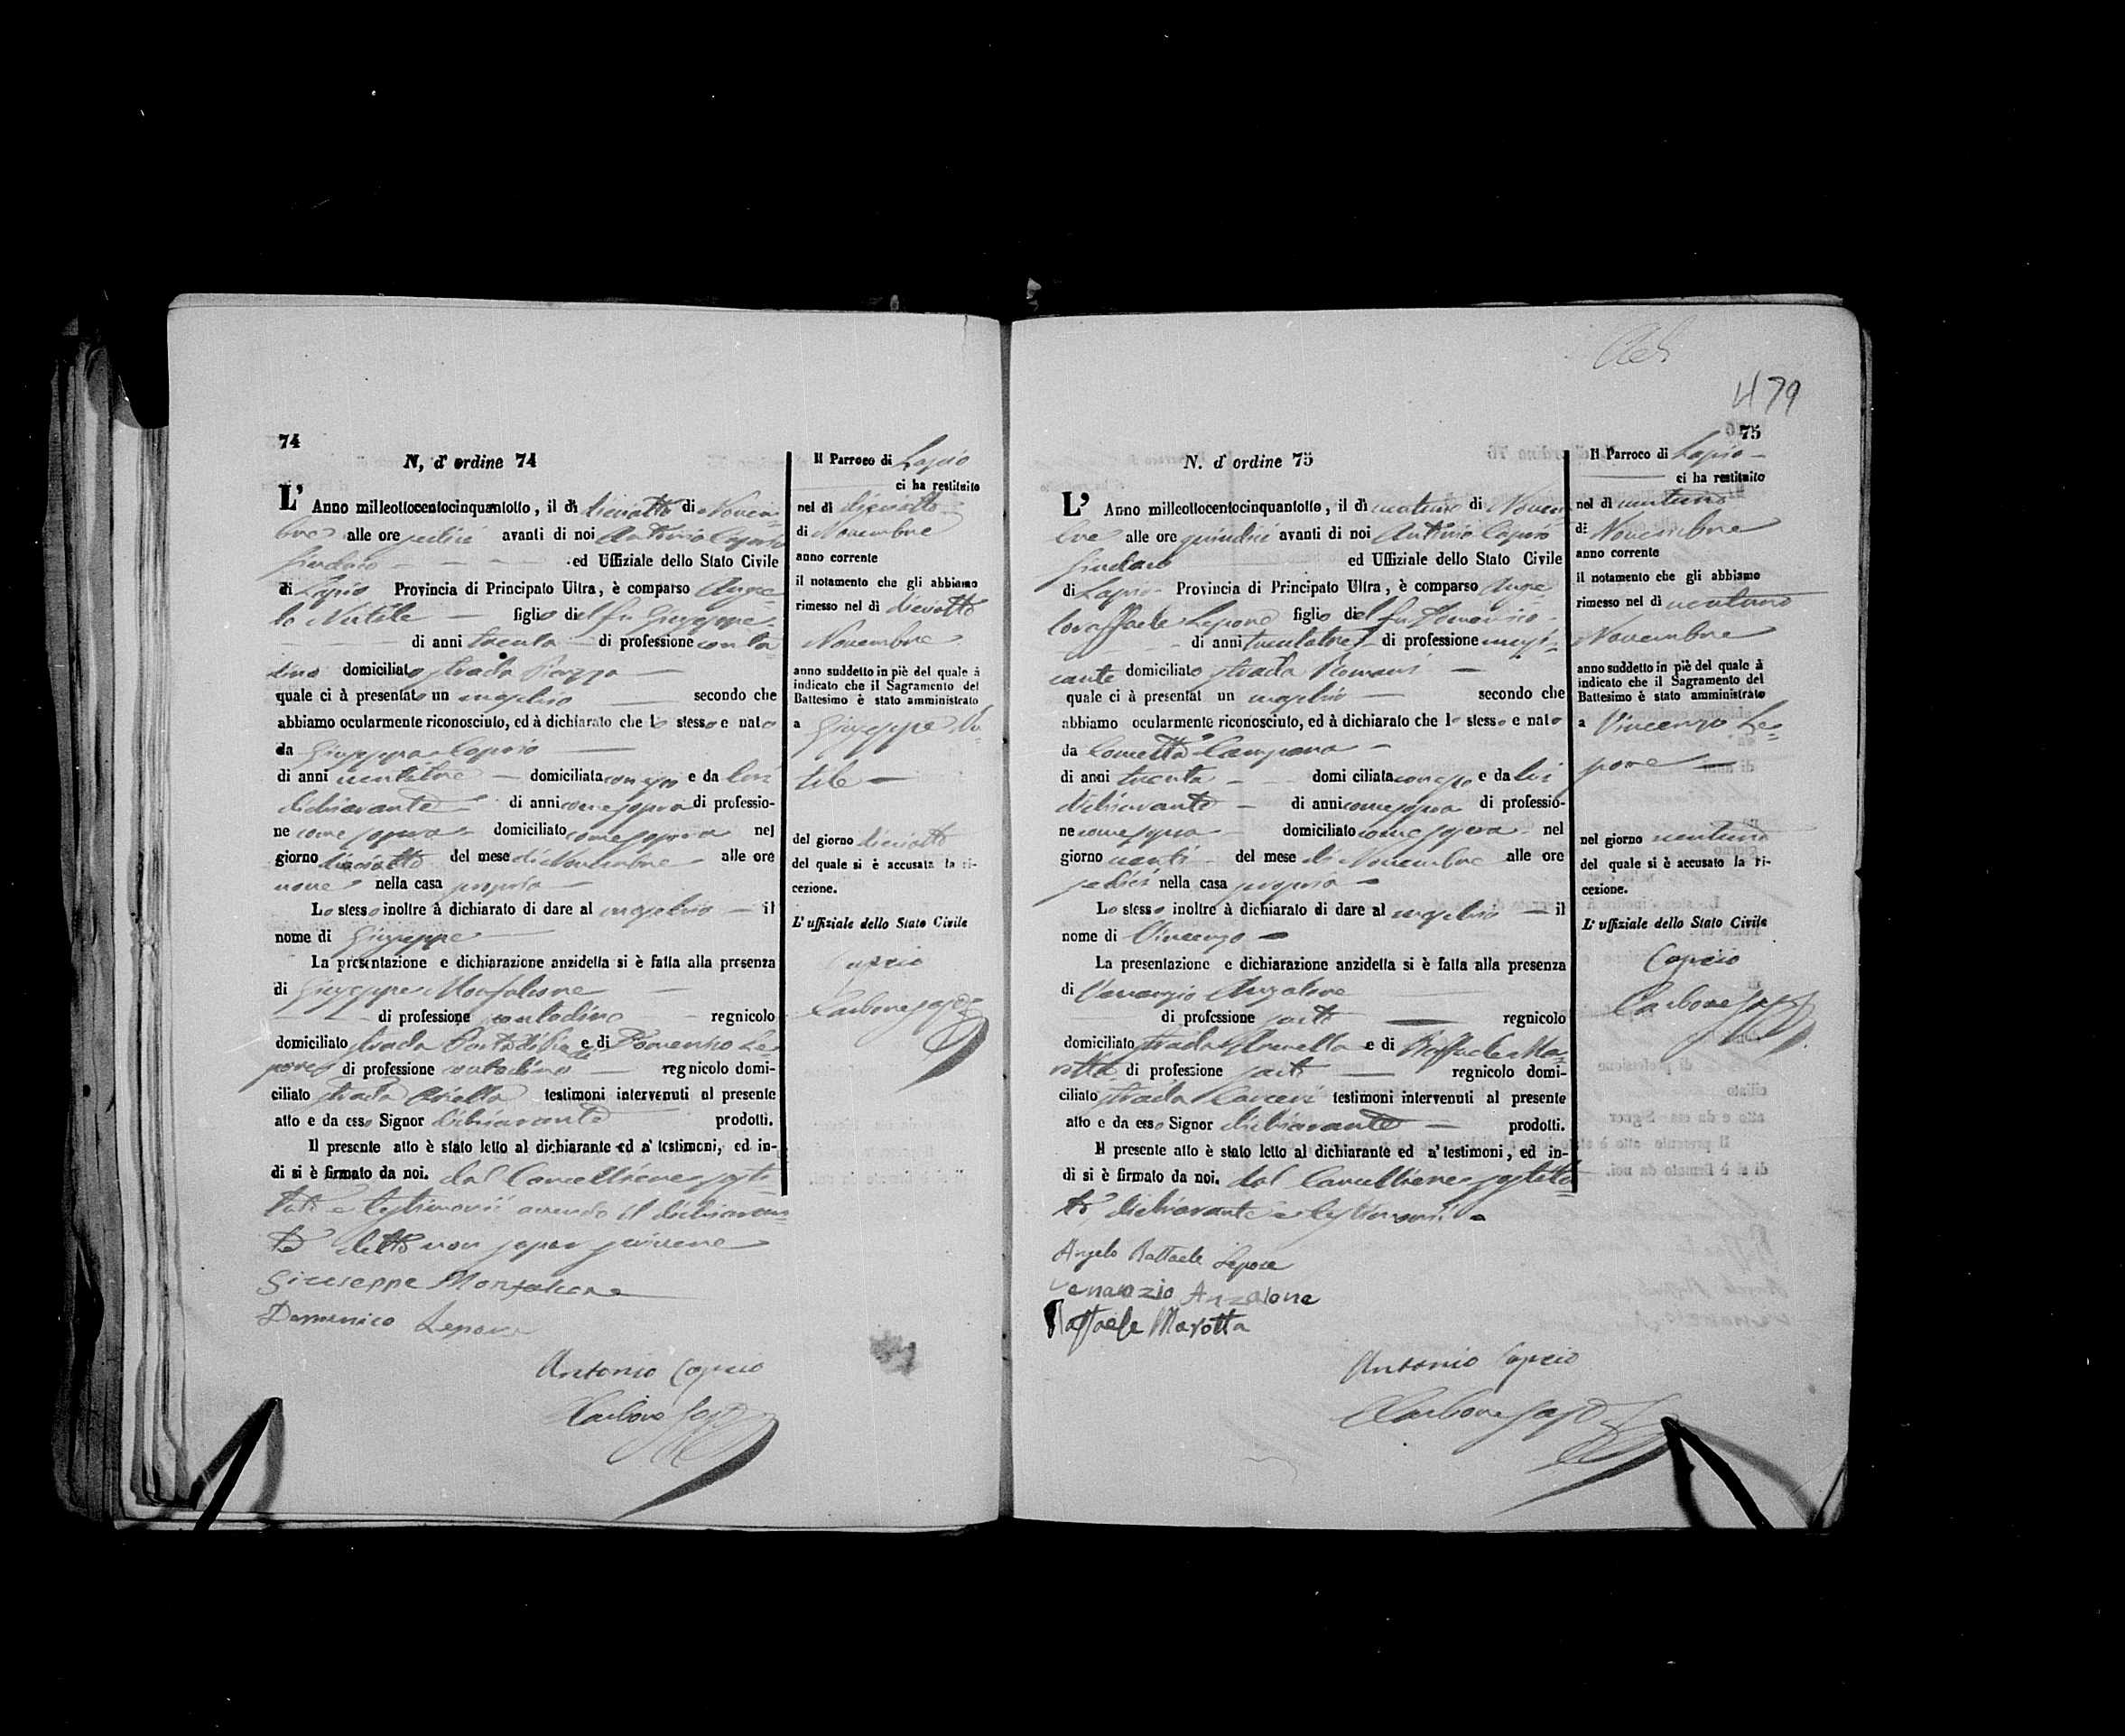 74
N, d' ordine 74
L' Anno milleottocentocinquantotto, il dì dieciotto di Novem-
bre alle ore sedici avanti di noi Antonio Caprio
Sindaco ed Uffiziale dello Stato Civile
di Lapio Provincia di Principato Ultra, è comparso Ange-
lo figlio del fu Giuseppe
di anni trenta di professione conta-
dino domiciliato strada Piazza
quale ci à presentato un maschio secondo che
abbiamo ocularmente riconosciuto, ed à dichiarato che lo stesso e nato
da Giuseppa Caprio
di anni ventitre domiciliata con esso e da lui
dichiarante di anni come sopra di professio-
ne come sopra domiciliato come sopra nel
giorno dieciotto del mese di Novembre alle ore
nove nella casa propria
Lo stesso inoltre à dichiarato di dare al maschio il
nome di Giuseppe
La presentazione e dichiarazione anzidetta si è fatta alla presenza
di Giuseppe Monfalcone
di professione contadino regnicolo
domiciliato strada e di Domenico Le-
pore di professione contadino regnicolo domi-
ciliato strada testimoni intervenuti al presente
atto e da esso Signor dichiarante prodotti.
Il presente atto è stato letto al dichiarante ed a' testimoni, ed in-
di si è firmato da noi. dal Cancelliere sosti-
tuto e testimonii avendo il dichiaran-
te detto non saper scrivere
Giuseppe Monfalcone
Domenico Lepore
Antonio Caprio
Carbone Sost
Il Parroco di Lapio
ci ha restituito
nel dì dieciotto
di Novembre
anno corrente
il notamento che gli abbiamo
rimesso nel dì dieciotto
Novembre
anno suddetto in piè del quale à
indicato che il Sagramento del
Battesimo è stato amministrato
a Giuseppe
del giorno dieciotto
del quale si è accusata la ri-
cezione.
L' uffiziale dello Stato Civile
Caprio
Carbone Sost
479
75
N. d' ordine 75
L' Anno milleottocentocinquantotto, il dì ventuno di Novem
bre alle ore quindici avanti di noi Antonio Caprio
Sindaco ed Uffiziale dello Stato Civile
di Lapio Provincia di Principato Ultra, è comparso Ange
loraffaele Lepore figlio del fu Domenico
di anni trentatre di professione
cante domiciliato strada Romani
quale ci à presentat un maschio secondo che
abbiamo ocularmente riconosciuto, ed à dichiarato che lo stesso e nato
da Concetta Campana
di anni trenta domi ciliata con esso e da lui
dichiarante di anni come sopra di professio-
ne come sopra domiciliato come sopra nel
giorno venti del mese di Novembre alle ore
sedici nella casa propria
Lo stesso inoltre à dichiarato di dare al maschio il
nome di Vincenzo
La presentazione e dichiarazione anzidetta si è fatta alla presenza
di Venanzio Anzalone
di professione sarto regnicolo
domiciliato strada e di Raffaele Ma-
rotta di professione sarto regnicolo domi-
ciliato strada Carceri testimoni intervenuti al presente
atto e da esso Signor dichiarante prodotti.
Il presente atto è stato letto al dichiarante ed a' testimoni, ed in-
di si è firmato da noi. dal Cancelliere sostitu-
to dichiarante e testimoni
Angelo Raffaele Lepore
Venanzio Anzalone
Raffaele Marotta
Antonio Caprio
Carbone Sost
Il Parroco di Lapio
ci ha restituito
nel dì ventuno
di Novembre
anno corrente
il notamento che gli abbiamo
rimesso nel dì ventuno
Novembre
anno suddetto in piè del quale à
indicato che il Sagramento del
Battesimo è stato amministrato
a Vincenzo Le-
pore
nel giorno ventuno
del quale si è accusato la ri-
cezione.
L' uffiziale dello Stato Civile
Caprio
Carbone Sost